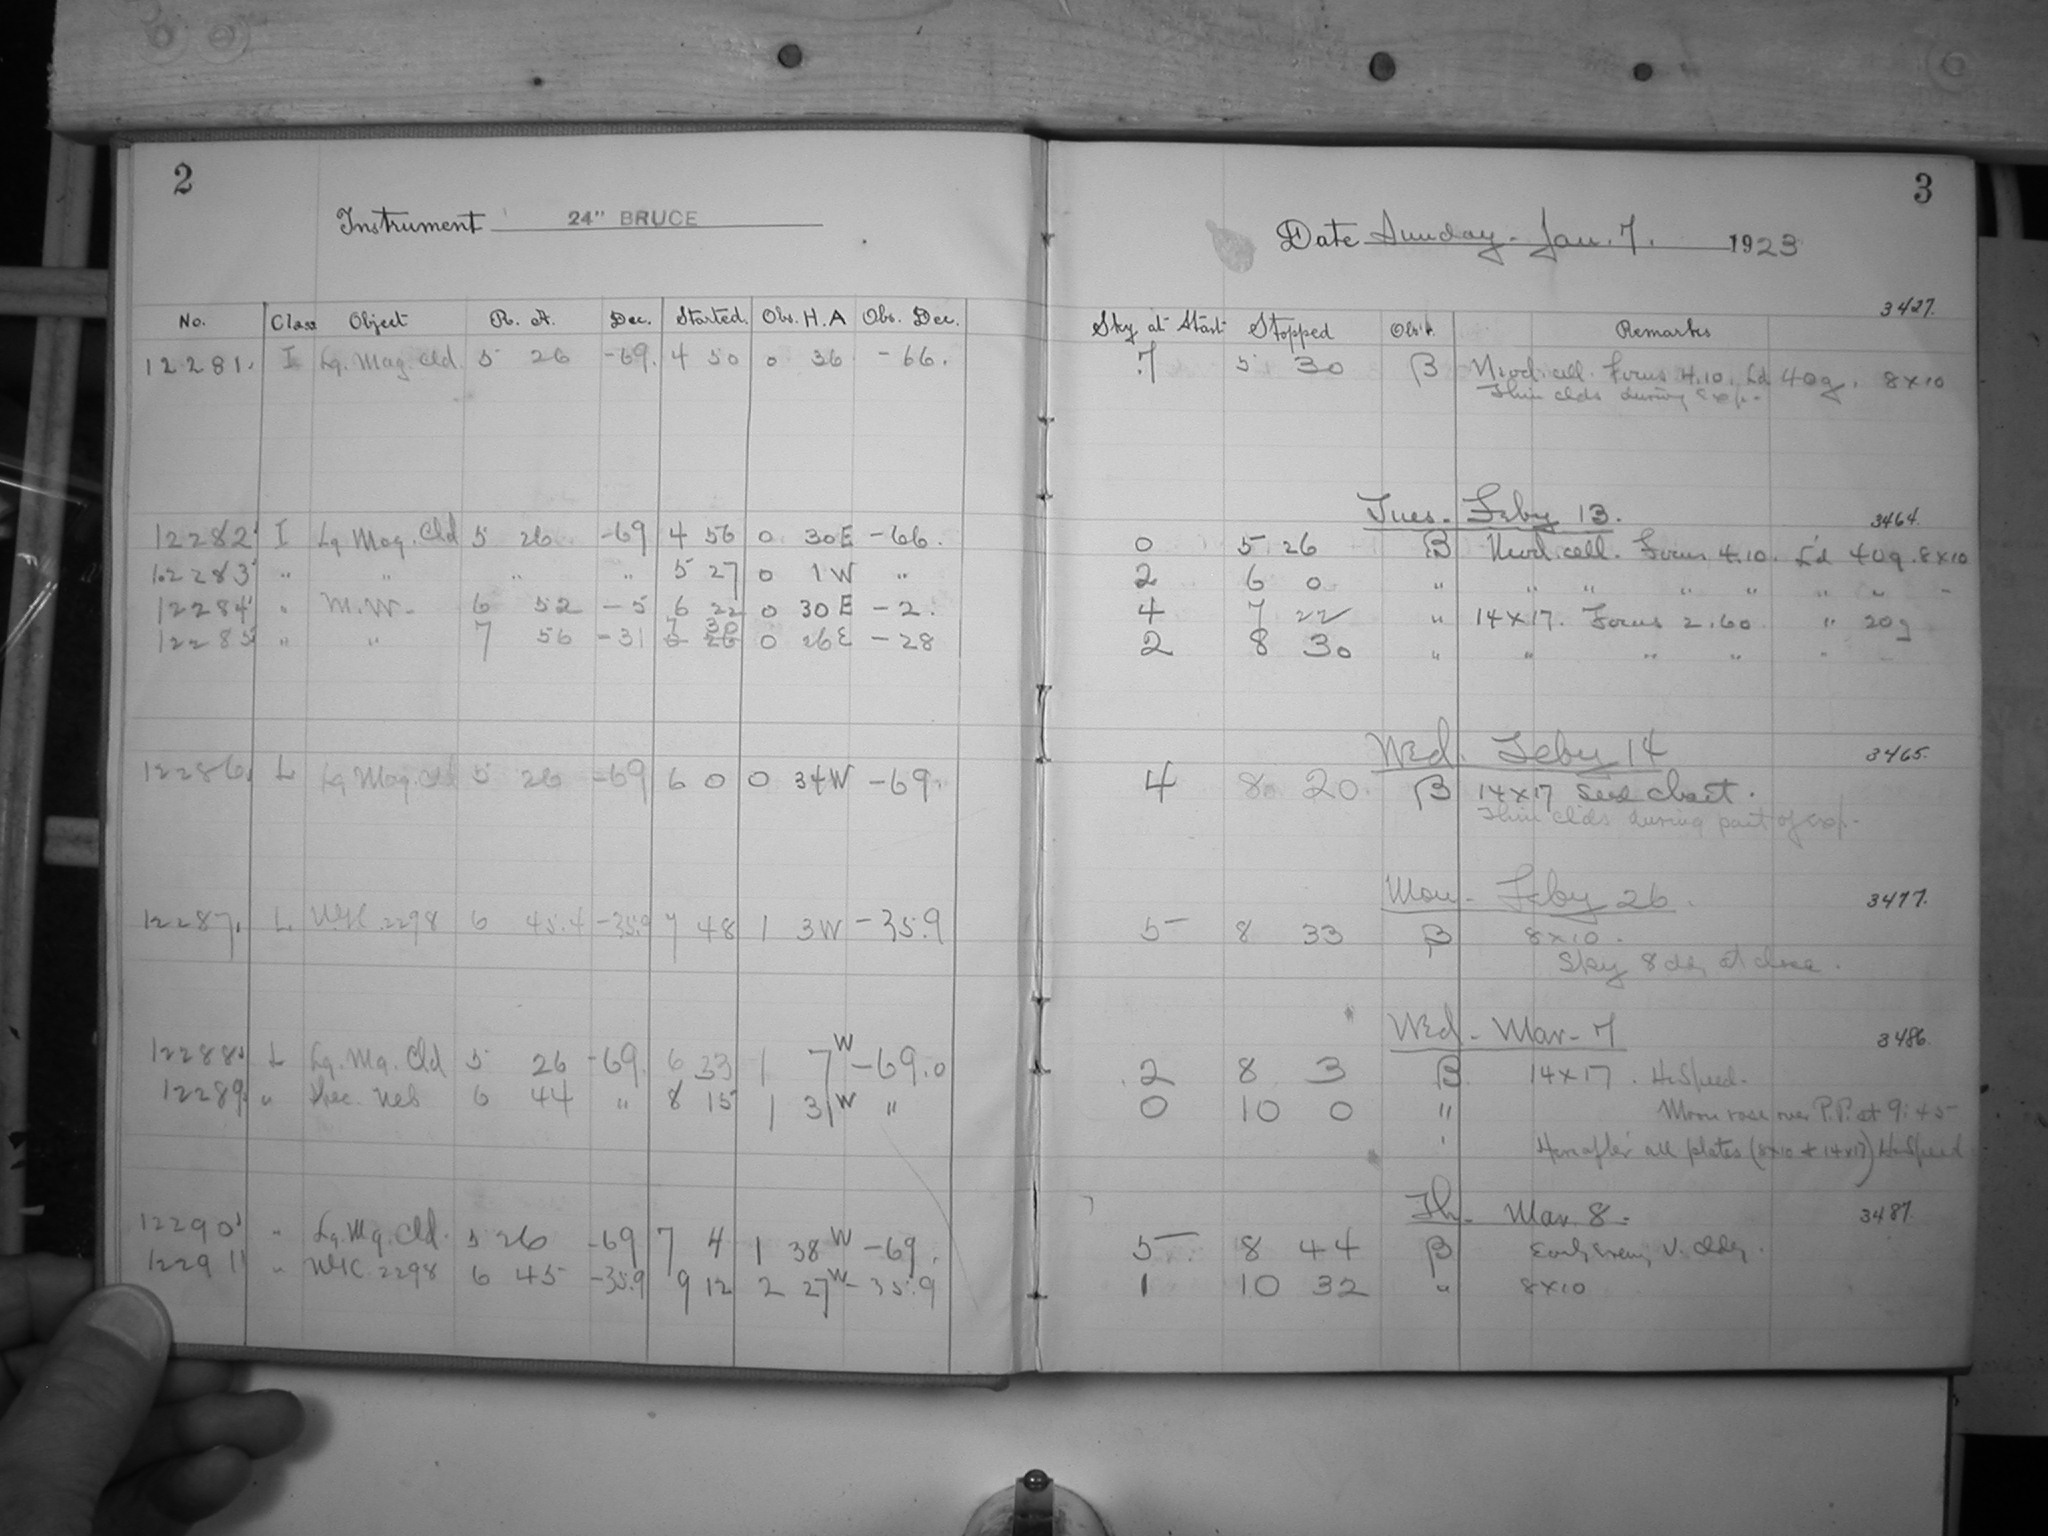 2
Instrument 24" BRUCE
No. Class Object R. A. Dec. Started Obs. H. A Obs. Dec.
12281. I Lg. Mag. Cld. 5 26 -69. 4 50 0 36 -66.
12282 I Lg Mag. Cld 5 26 -69 4 56 0 30 E -66.
12283 " " " " 5 27 0 1 W "
12284 " M.W. 6 52 -5 6 22 0 30 E -2.
12285 " " 7 56 -31 7 30 0 26 E -28
12286. L Lg Mag. Cld 5 26 -69 6 0 0 34 W -69.
12287. L N.G.C. 2298 6 45.4 -35.9 7 48 1 3 W -35.9
12288. L Lg. Mg. Cld 5 26 -69. 6 33 1 7 W -69.0
12289. " Neb 6 44 " 8 15 1 31 W "
12290 " Lg. Mg. Cld. 5 26 -69 7 4 1 38 W -69.
12291 " N.G.C. 2298 6 45 -35.9 9 12 2 27 W -35.9
3
Date Sunday - Jan. 7. 1923
3427.
Sky at Start Stopped Obs'r. Remarks
7 5 30 B cell. Focus 4.10. L'd 40g. 8x10
Thin clds during exp.
Tues. Feby 13. 3464.
0 5 26 B cell. Focus 4.10. L'd 40g. 8x10
2 6 0 " " " " " " " "
4 7 22 " 14x17. Focus 2.60. " 20g
2 8 30 " " " " " "
Wed. Feby 14 3465.
4 8 20. B 14x17 Seed chart.
Thin clds during part of exp.
Mon. Feby 26. 3477.
5 8 33 B 8x10.
Sky 8 at close.
Wed. Mar. 7 3486.
2 8 3 B. 14x17. H. Speed.
0 10 0 " Moon rose over P.P. at 9:45
Hereafter all plates (8x10 + 14x17) H. Speed
Th. Mar. 8. 3487.
5 8 44 B
1 10 32 " 8x10